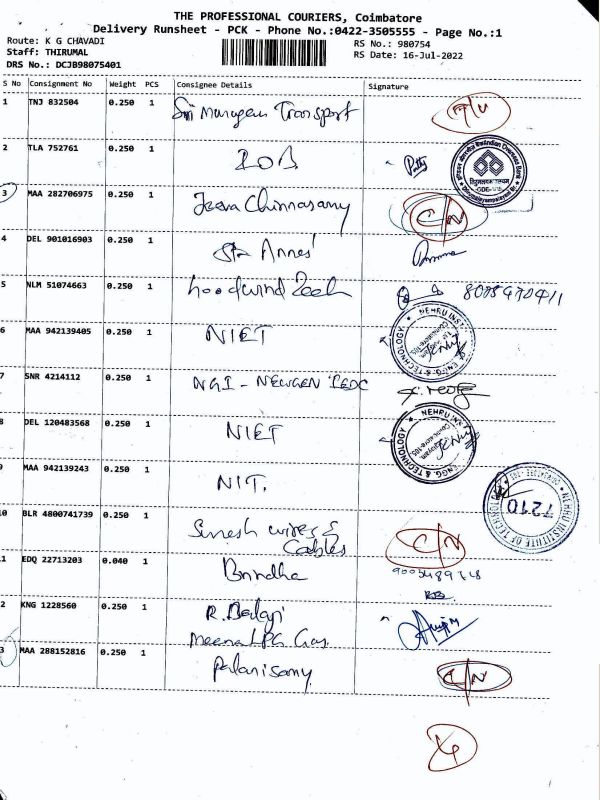 THE PROFESSIONAL COURIERS, Coimbatore
Delivery Runsheet - PCK - Phone No.:0422-3505555 - Page No.:1
Route: K G CHAVADI
RS No.: 980754
Staff: THIRUMAL
RS Date: 16-Jul-2022
DRS No.: DCJB98075401
S No Consignment No Weight PCS Consignee Details Signature
1 TNJ 832504 0.250 1 Sri Murugan Transport
2 TLA 752761 0.250 1 IOB
3 MAA 282706975 0.250 1 Jeeva Chinnasamy C/N
4 DEL 901016903 0.250 1 St Annes'
5 NLM 51074663 0.250 1
6 MAA 942139405 0.250 1 NIET
7 SNR 4214112 0.250 1 NGI - NEWGEN IEDC
8 DEL 120483568 0.250 1 NIET
9 MAA 942139243 0.250 1 NIT.
10 BLR 4800741739 0.250 1 Suresh wires & C/N
Cables
11 EDQ 22713203 0.040 1 Brindha
2 KNG 1228560 0.250 1 R. Balaji
Meena LPG Gas
3 MAA 288152816 0.250 1 Palanisamy C/N
NEHRU INSTITUTE OF TECHNOLOGY
7210